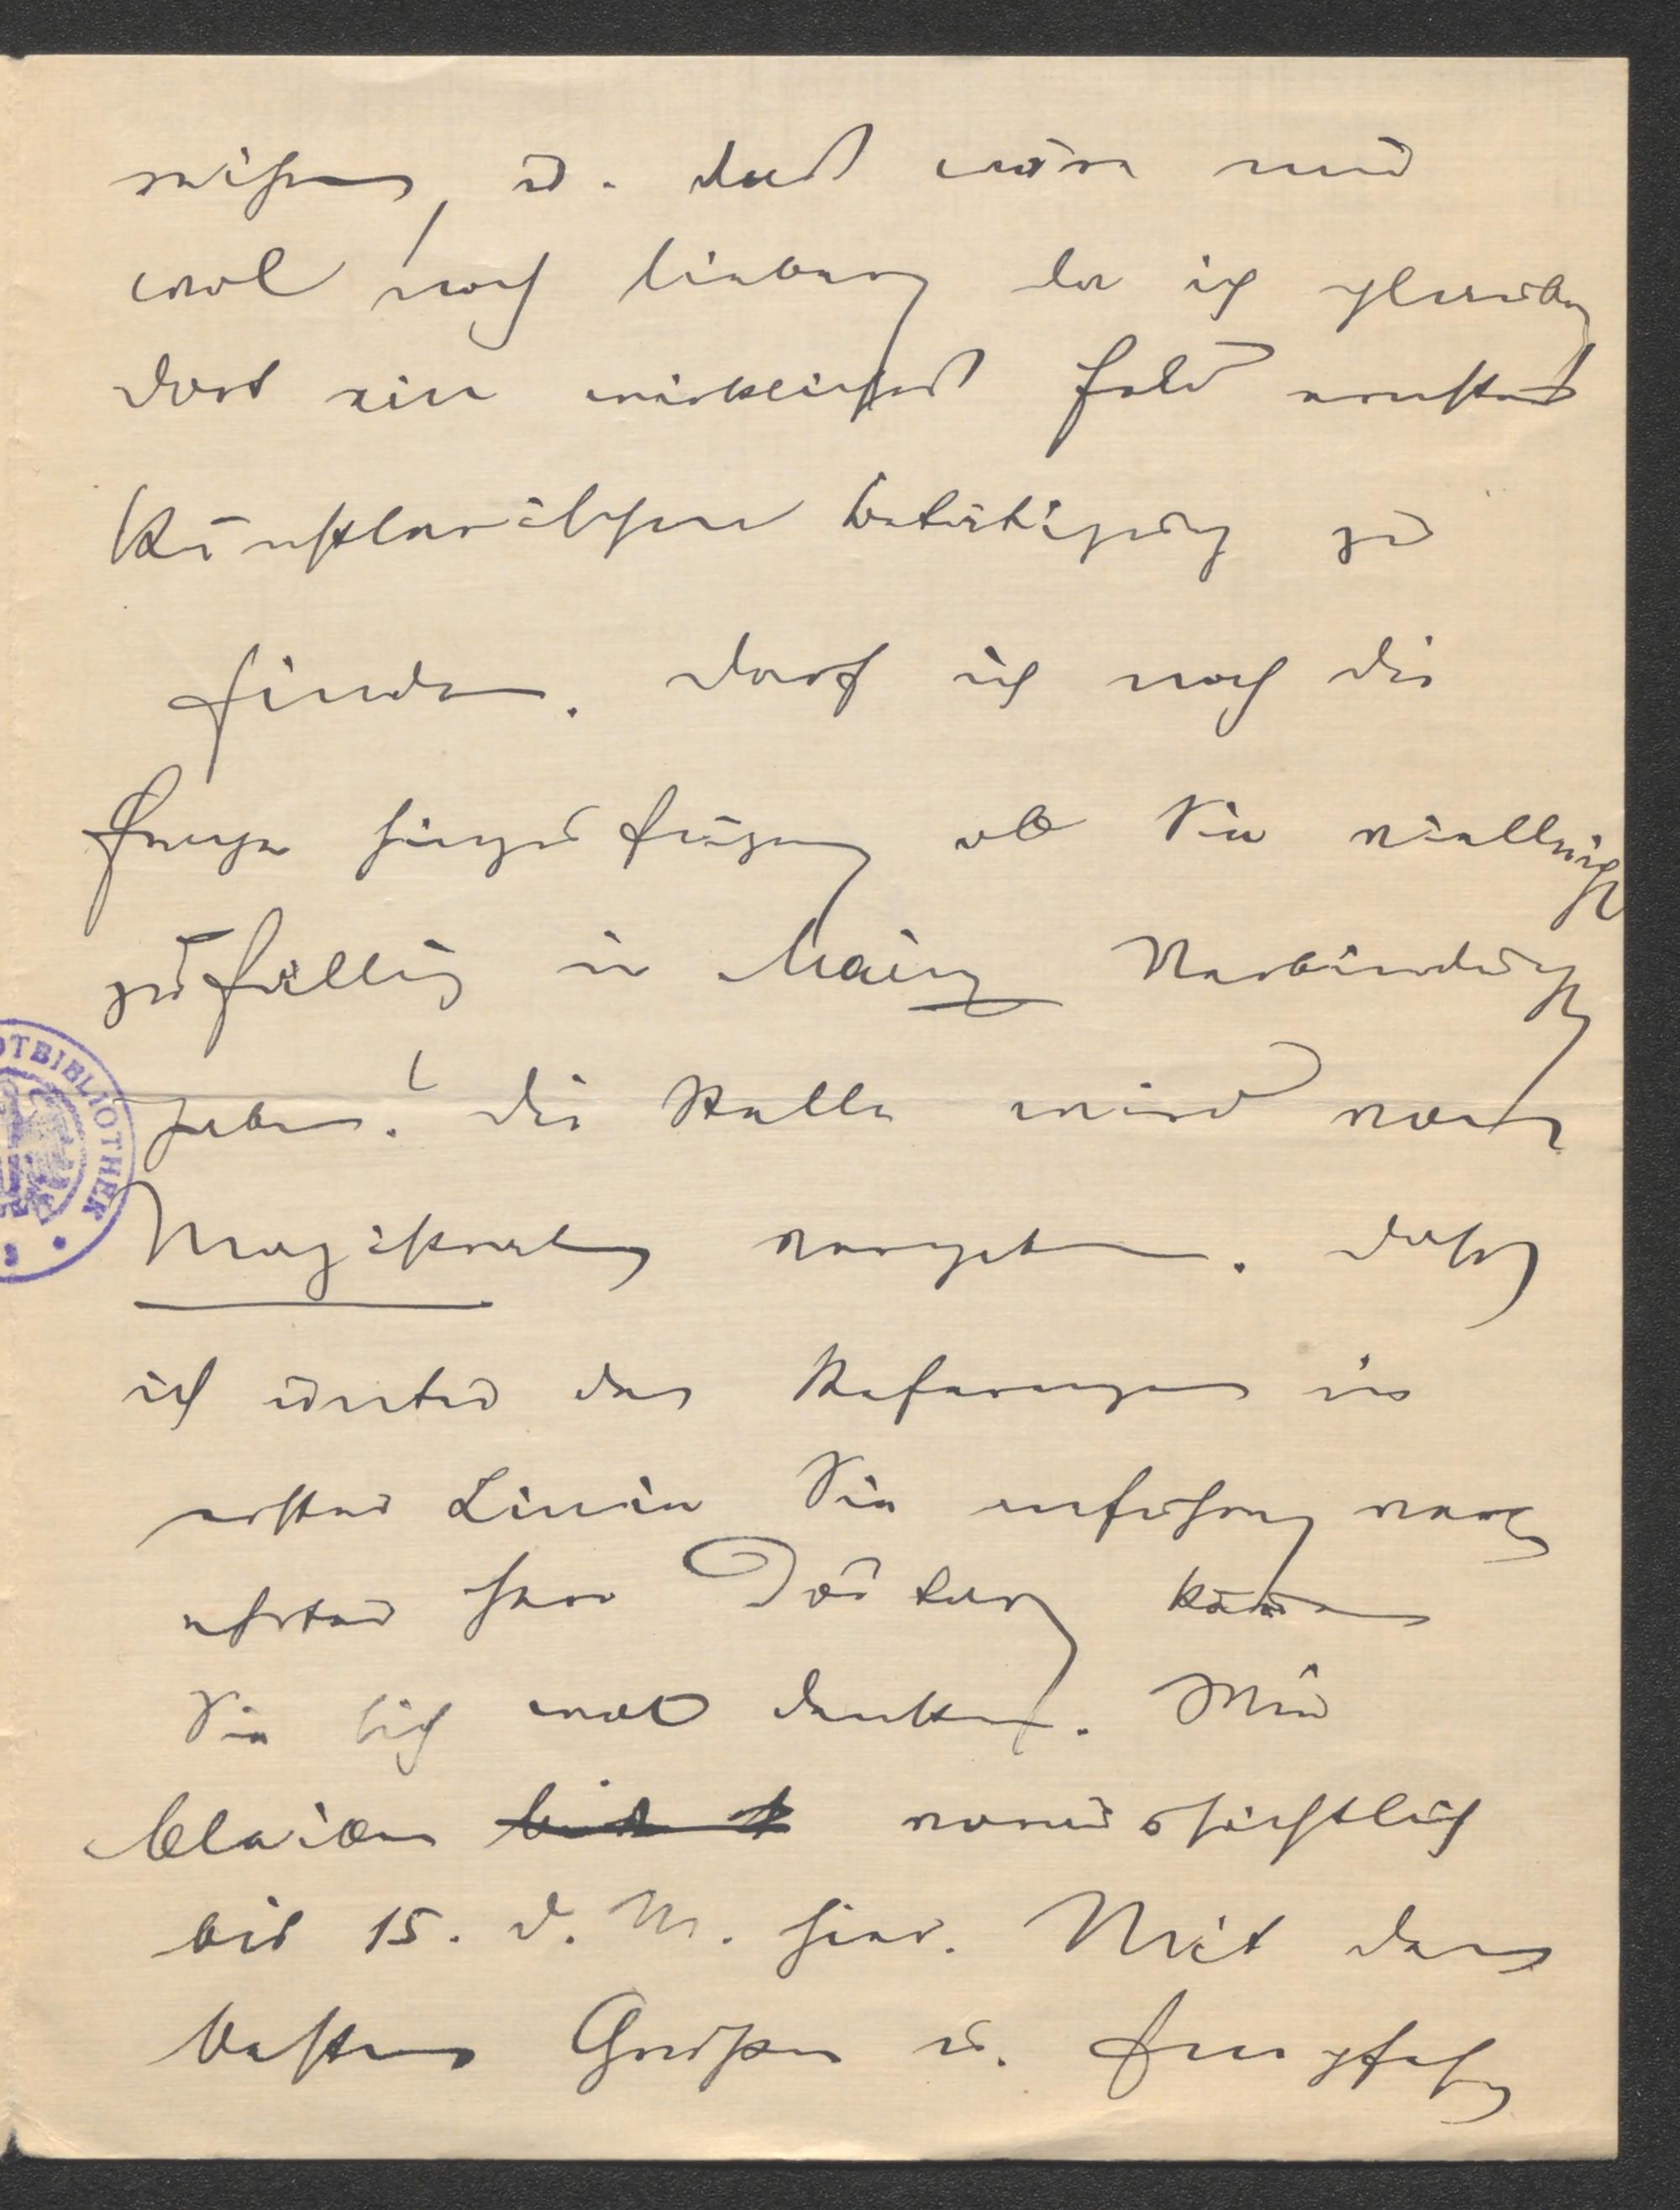 reichen, u. das wäre mir
wol noch lieber da ich glaube
dort ein wirkliches Feld ernster
künstlerischer Betätigung zu
finden. Darf ich noch die
Frage hinzufügen ob Sie vielleicht
zufällig in Mainz Verbindungen
haben? Die Stelle wird vom
Magistrat vergeben. Daß
ich unter den Referenzen in
erster Linie Sie anführe ver
ehrter Herr Doctor, können
Sie sich wol denken. Wir
bleiben voraussichtlich
bis 15. d. M. hier. Mit den
besten Grüßen u. Empfeh
OTBIBLIOTHEK